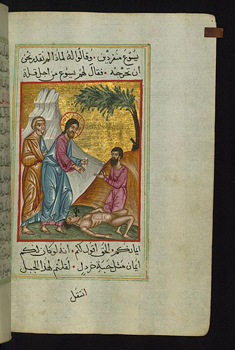 يسوع منفردين وقالوا له لماذا لم نقدر نحن
ان نخرجه فقال لهم يسوع من اجل قلة
ايمانكم الحق اقول لكم انه لو كان لكم
ايمان مثل حبة خردل لقلتم لهذا الجبل
انتقل